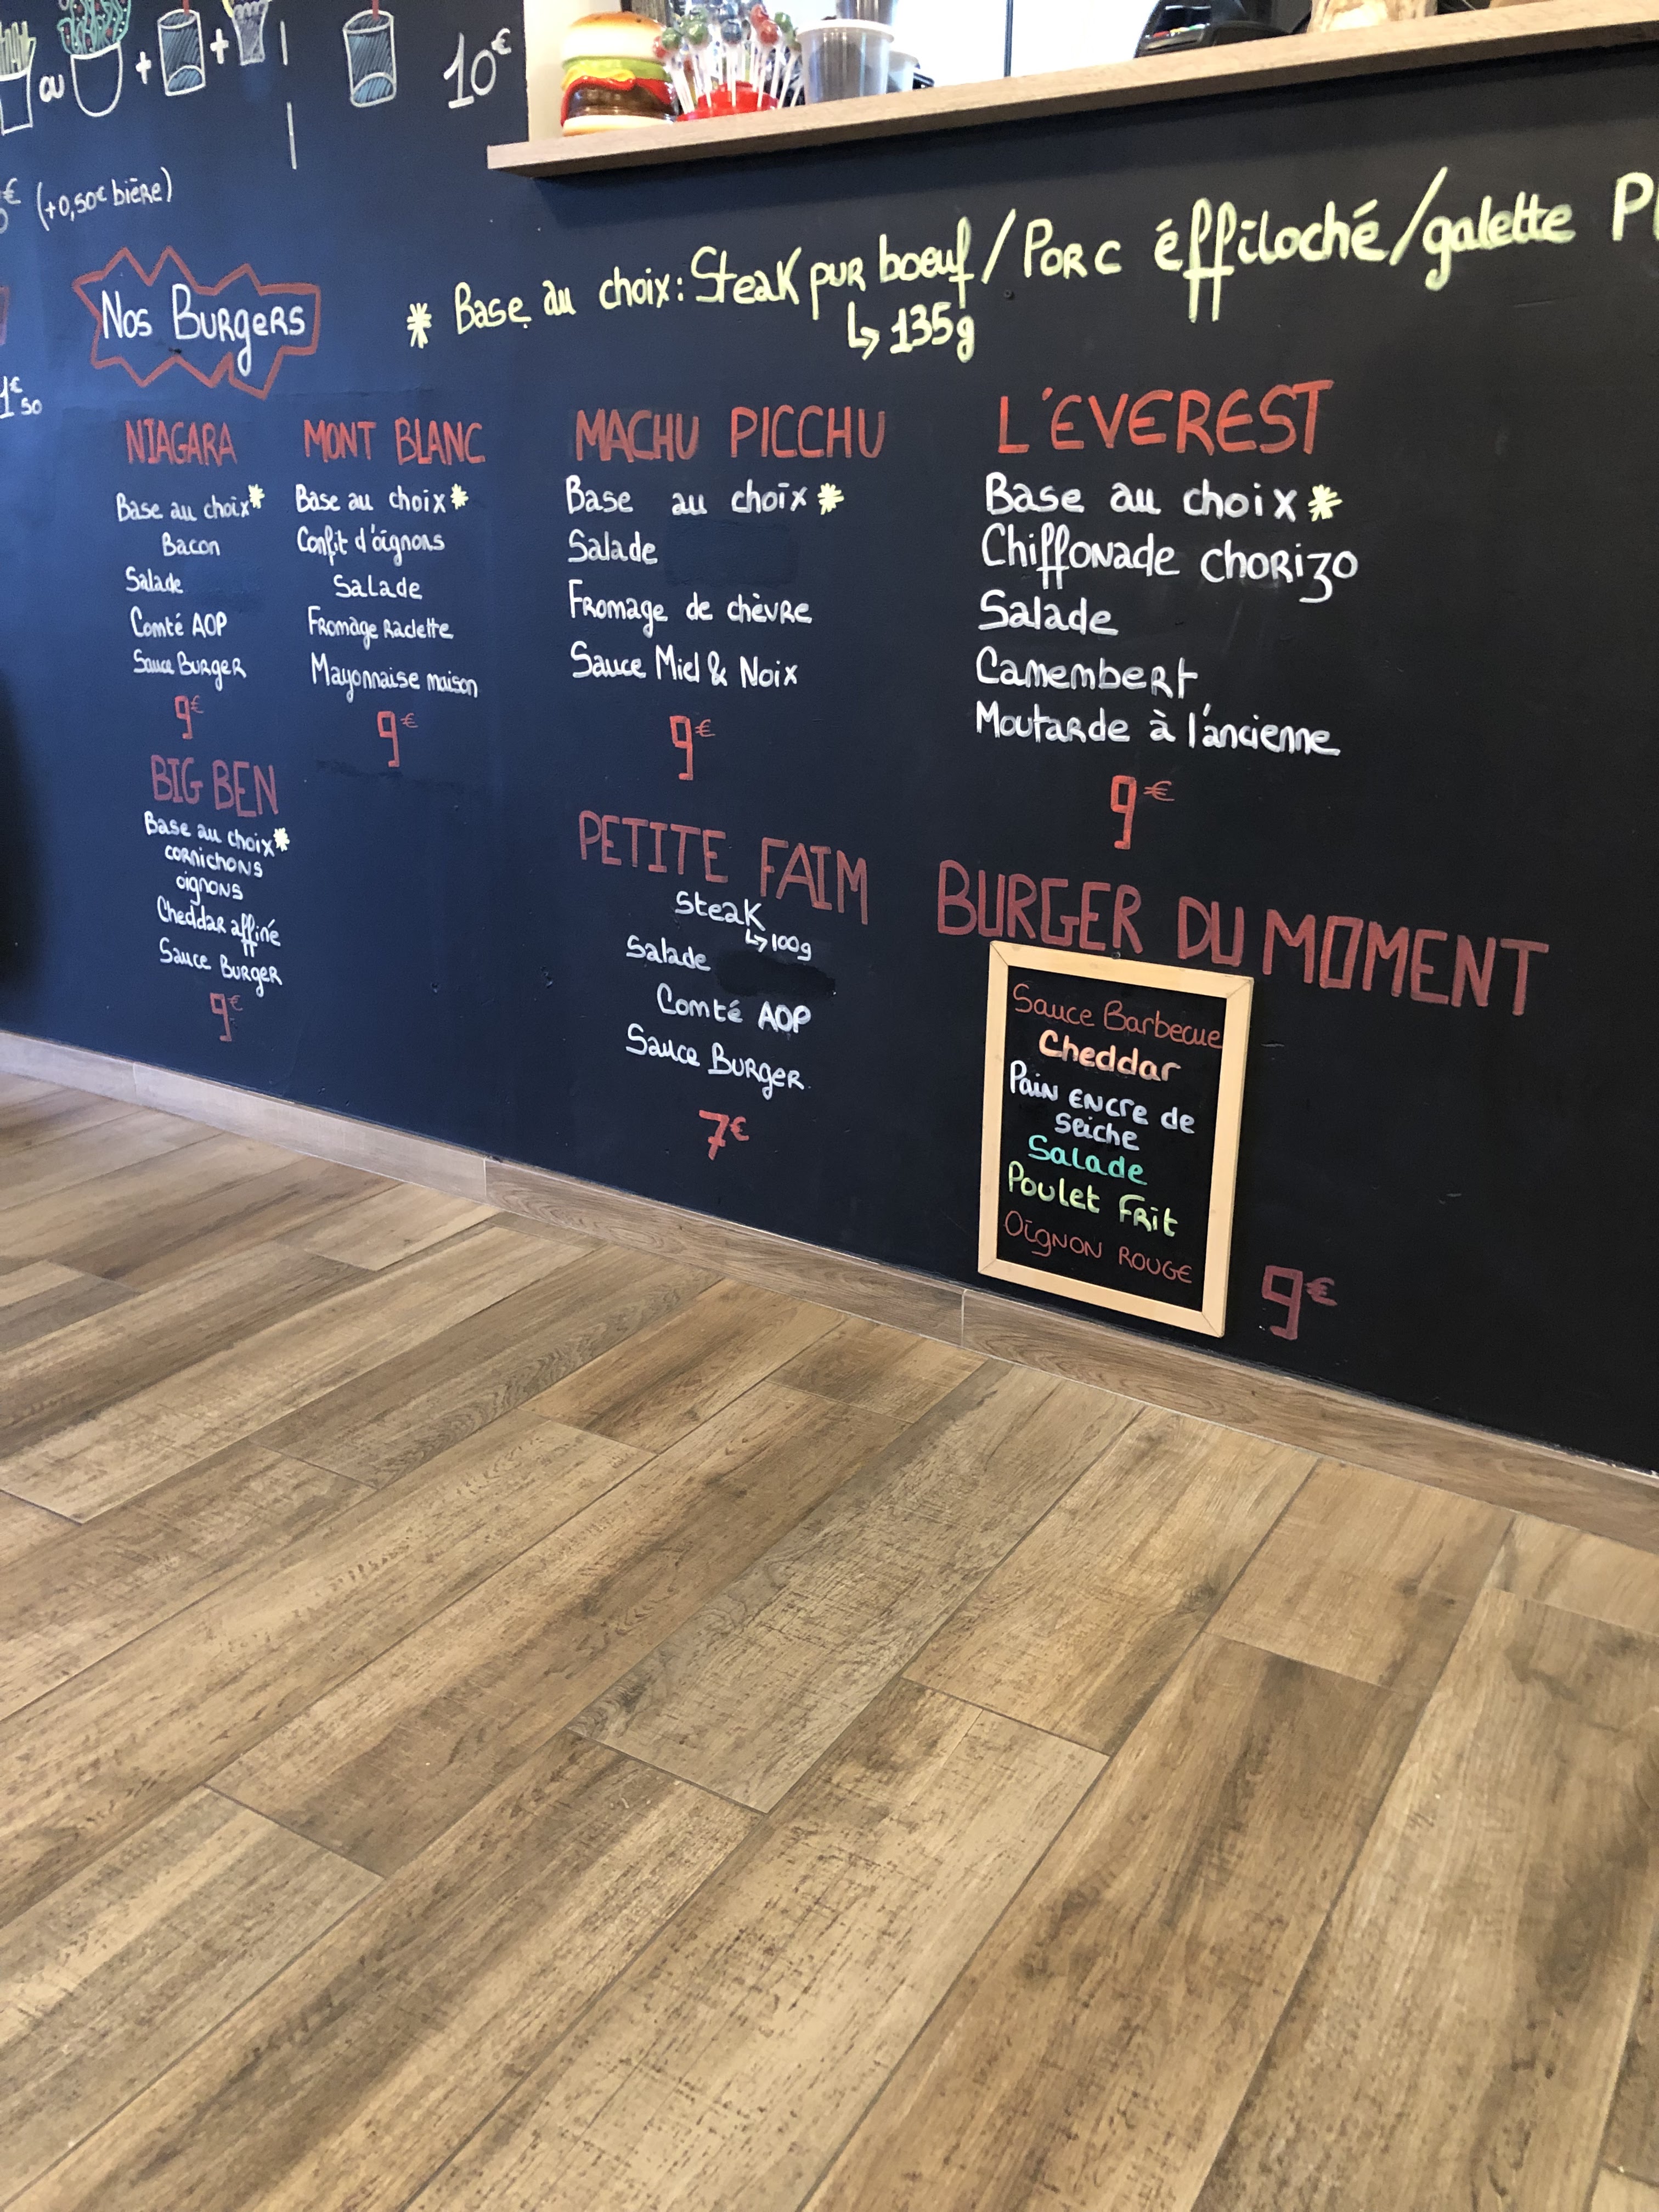 ou + + 10€
€ (+0,50€ bière)
1€50
Nos BURgeRS
* Base au choix: Steak pur boeuf / PORc éffiloché / galette
↳ 135g
NIAGARA
Base au choix*
Bacon
Salade
Comté AOP
Sauce BURgeR
9€
MONT BLANC
Base au choix*
Confit d'oignons
Salade
Fromage Raclette
Mayonnaise maison
9€
MACHU PICCHU
Base au choix*
Salade
Fromage de chèvre
Sauce Miel & Noix
9€
L'EVEREST
Base au choix*
Chiffonade chorizo
Salade
Camembert
Moutarde à l'ancienne
9€
BIG BEN
Base au choix*
cornichons
oignons
Cheddar affiné
Sauce BURGER
9€
PETITE FAIM
Steak
↳ 100g
Salade
Comté AOP
Sauce BURgeR
7€
BURGER DU MOMENT
Sauce Barbecue
Cheddar
Pain encre de
seiche
Salade
Poulet Frit
Oignon ROUGE
9€